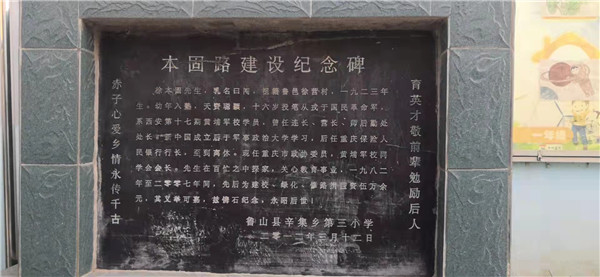 本固路建设纪念碑
赤子心爱乡情永传千古
徐本固先生，乳名曰海，祖籍鲁邑徐营村，一九二三年
生，幼年入塾，天资聪颖，十六岁投笔从戎于国民革命军，
系西安第十七期黄埔军校学员，曾任连长、营长、师后勤处
处长。新中国成立后于军事政治大学学习，后任重庆保险人
民银行行长，至到离休。现任重庆市政协委员，黄埔军校同
学会会长。先生在百忙之中探家，关心教育事业，一九八二
年至二零零七年间，先后为建校、绿化、修路捐资伍万余
元，其义举可嘉，兹镌石纪念，永昭后世！
鲁山县辛集乡第三小学
二零一二年三月十二日
育英才敬前辈勉励后人
一年级